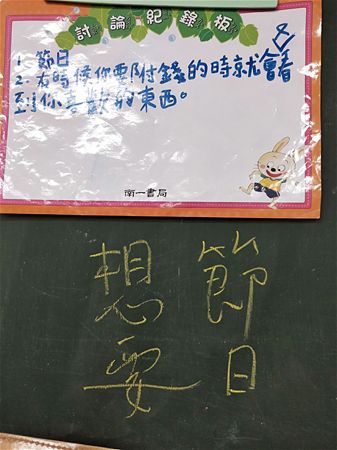 討論紀錄板
8
1. 節日
2. 有時候你要附錢的時就會看
到你喜歡的東西。
南一書局
節日
想要